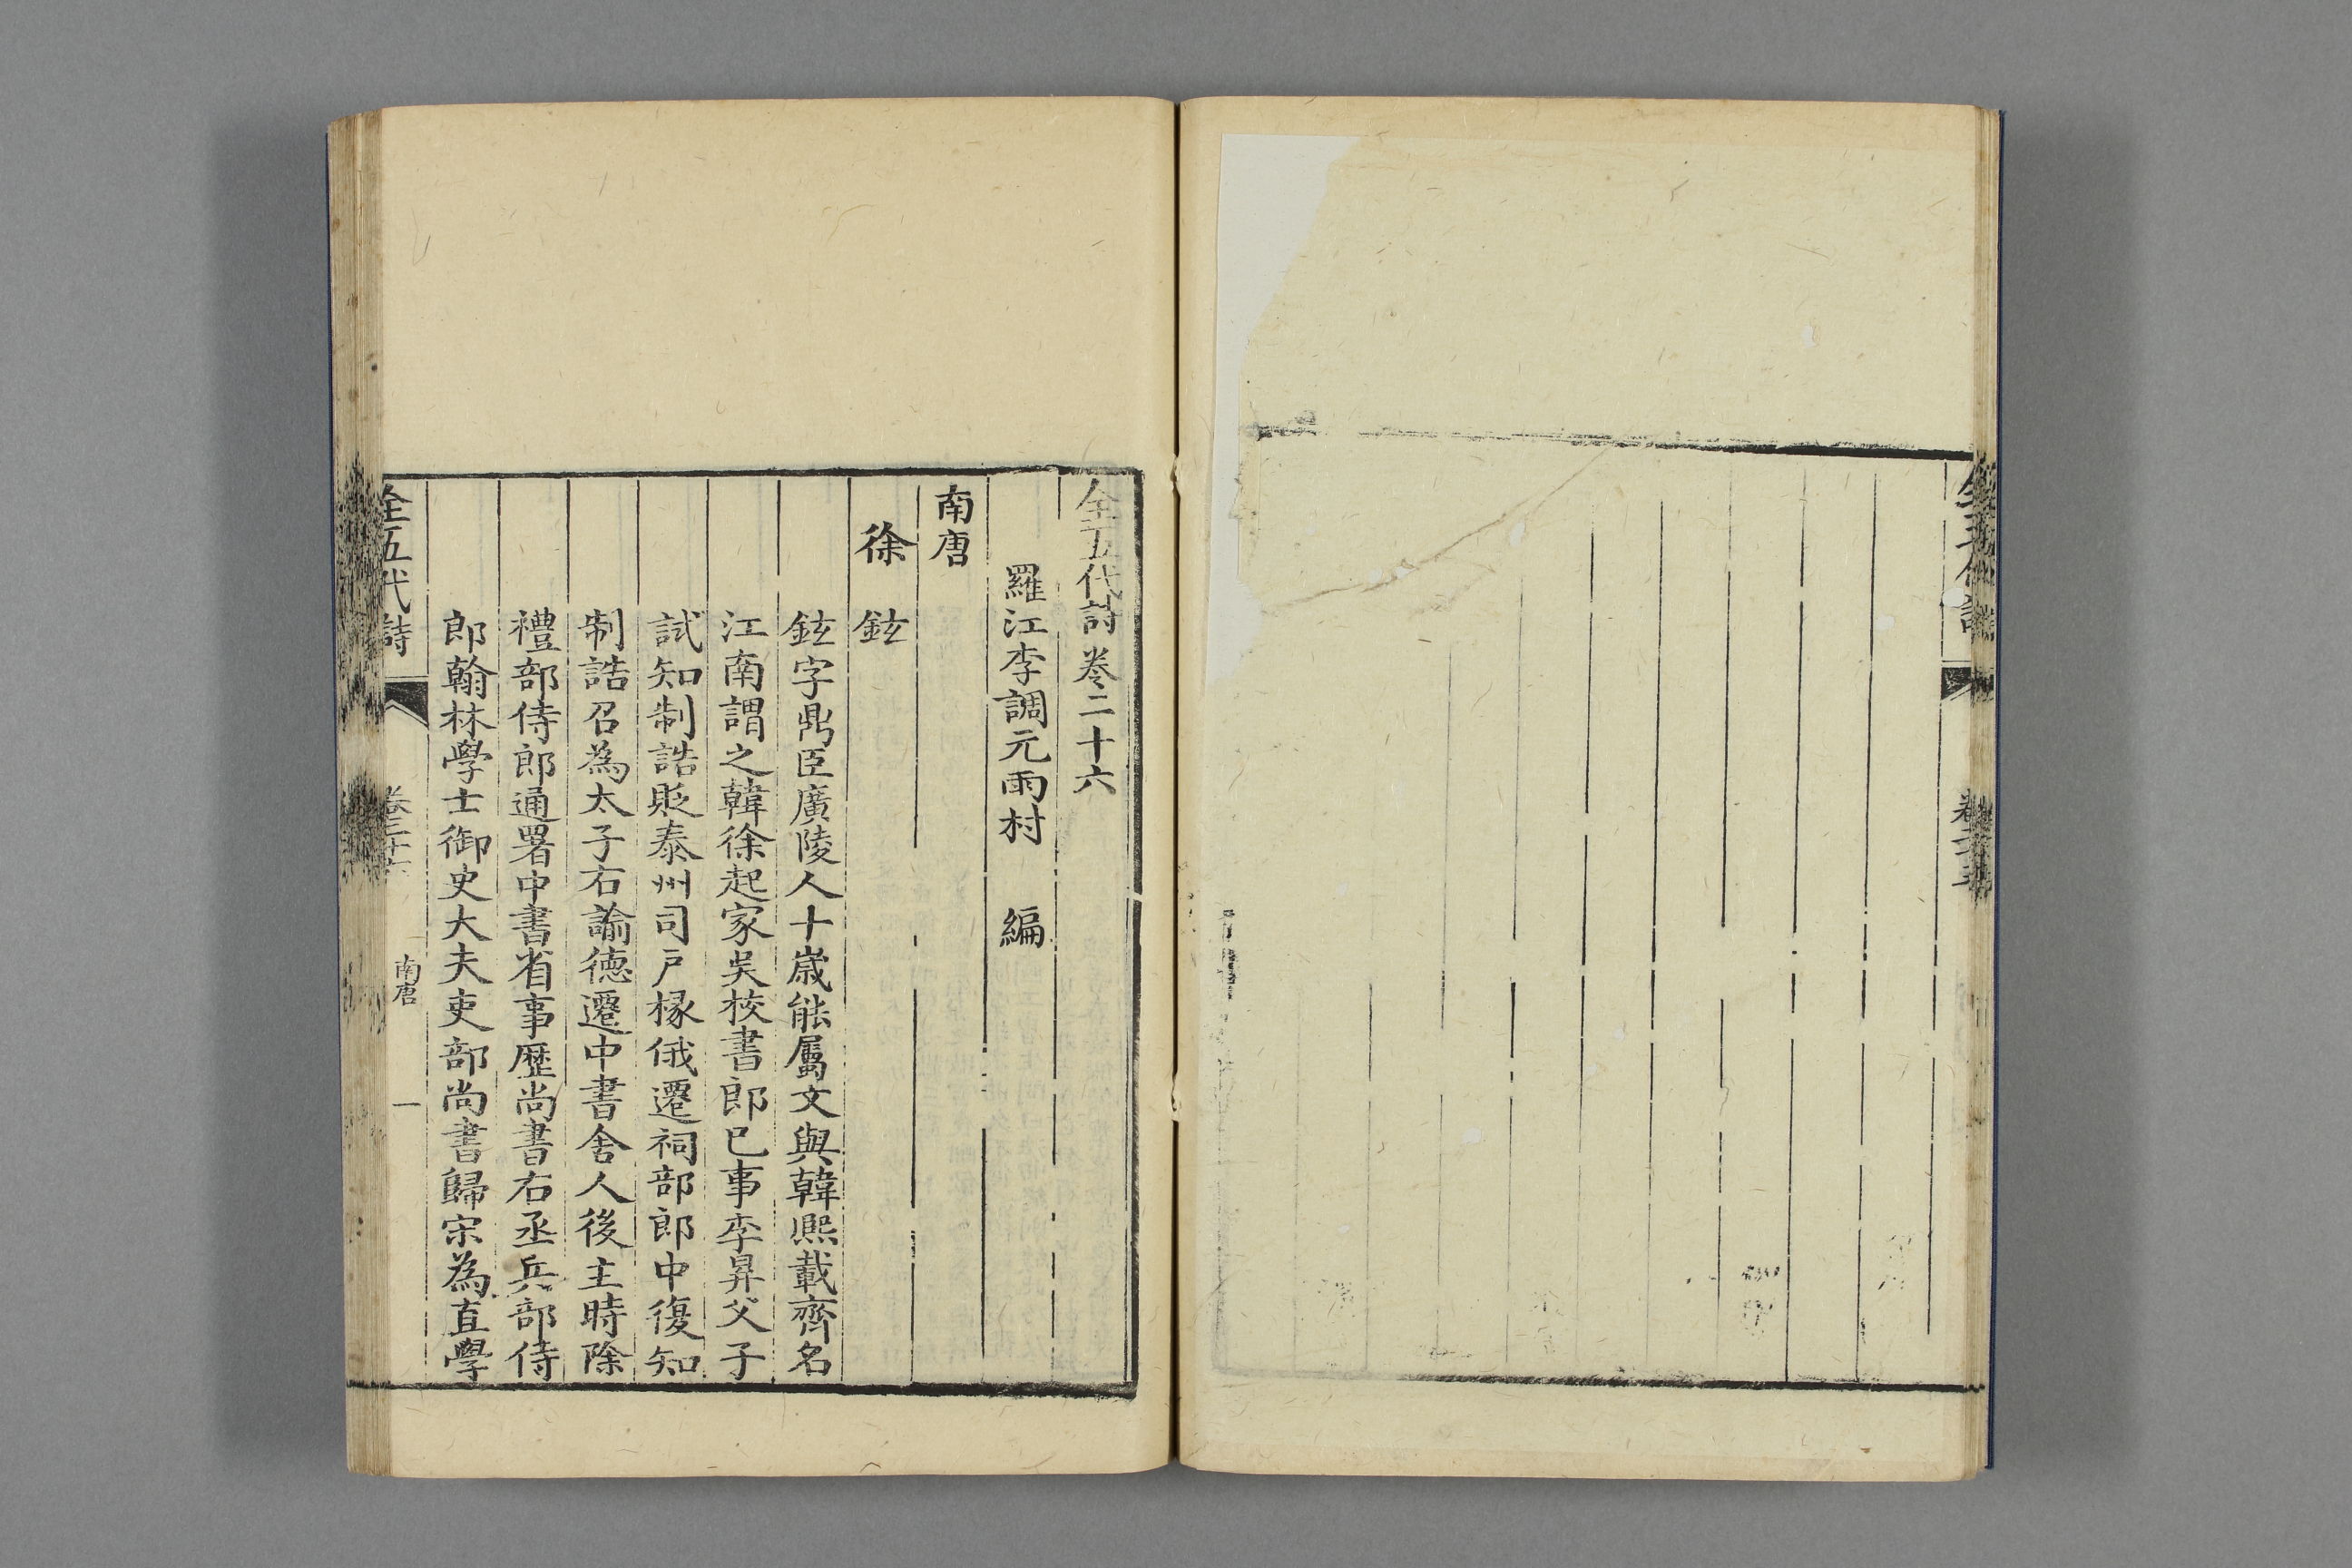 全五代詩卷二十六
羅江李調元雨村 編
南唐
徐 鉉
鉉字鼎臣廣陵人十歲能屬文與韓熙載齊名
江南謂之韓徐起家吳校書郎巳事李昪父子
試知制誥貶泰州司戶掾俄遷祠部郎中復知
制誥召為太子右諭德遷中書舍人後主時除
禮部侍郎通署中書省事歷尚書右丞兵部侍
郎翰林學士御史大夫吏部尚書歸宋為直學
全五代詩
南唐
一